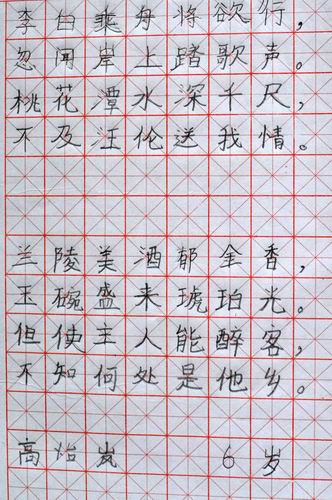 李白乘舟将欲行，
忽闻岸上踏歌声。
桃花潭水深千尺，
不及汪伦送我情。
兰陵美酒郁金香，
玉碗盛来琥珀光。
但使主人能醉客，
不知何处是他乡。
高怡岚 6岁